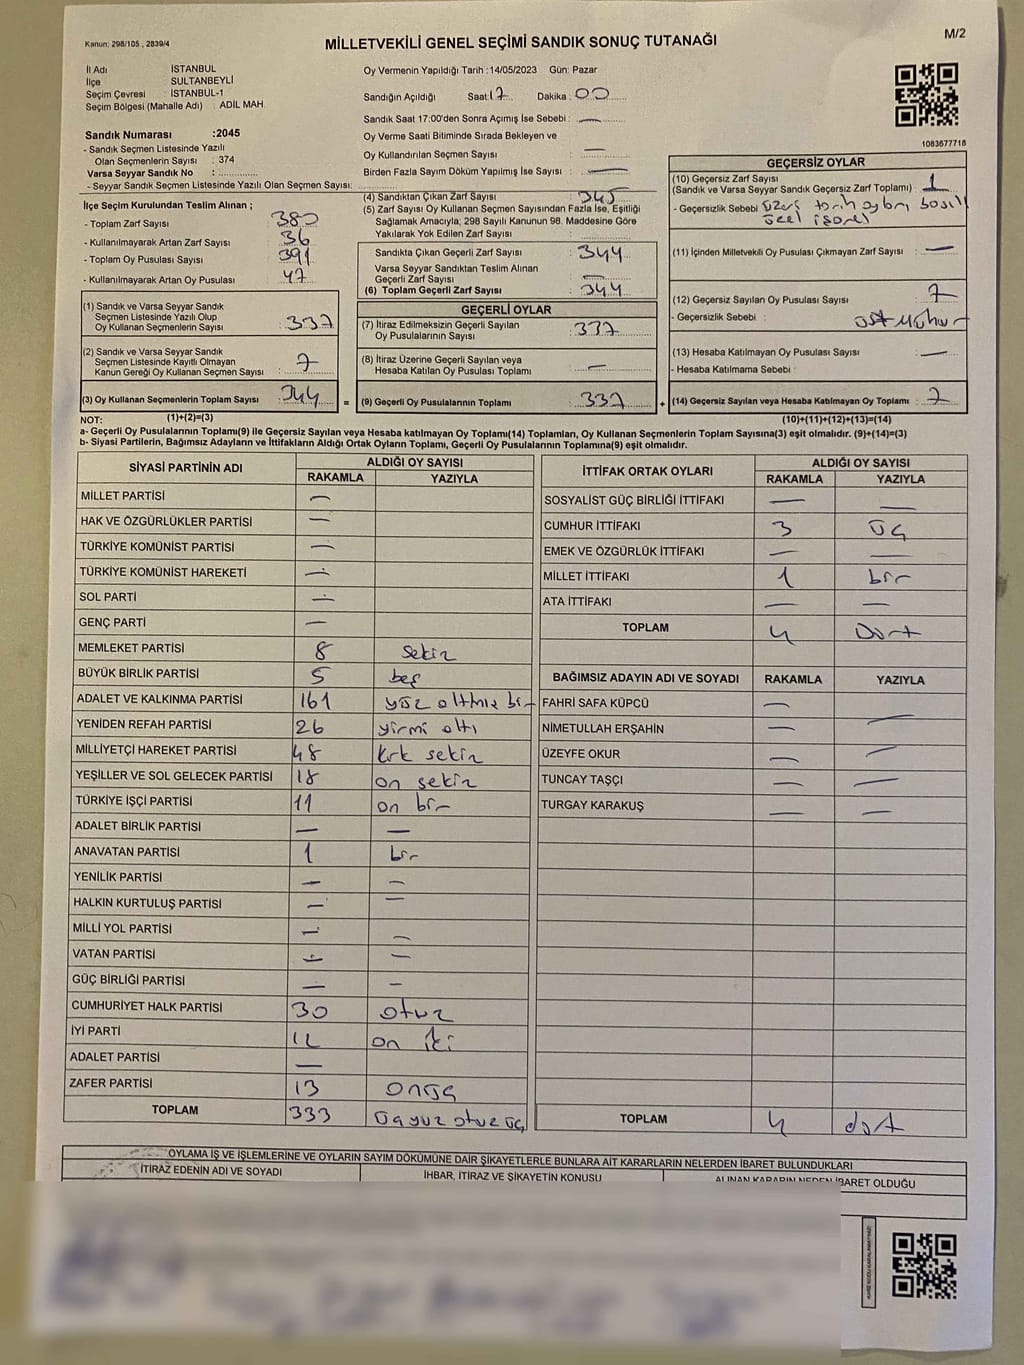 Kanun: 298/105 , 2839/4
M/2
MİLLETVEKİLİ GENEL SEÇİMİ SANDIK SONUÇ TUTANAĞI
İl Adı İSTANBUL
İlçe SULTANBEYLİ
Seçim Çevresi İSTANBUL-1
Seçim Bölgesi (Mahalle Adı) : ADİL MAH.
Sandık Numarası :2045
- Sandık Seçmen Listesinde Yazılı
Olan Seçmenlerin Sayısı : 374
Varsa Seyyar Sandık No :
- Seyyar Sandık Seçmen Listesinde Yazılı Olan Seçmen Sayısı:
Oy Vermenin Yapıldığı Tarih :14/05/2023 Gün: Pazar
Sandığın Açıldığı Saat:17 Dakika : 00
Sandık Saat 17:00'den Sonra Açımış İse Sebebi : —
Oy Verme Saati Bitiminde Sırada Bekleyen ve
Oy Kullandırılan Seçmen Sayısı : —
Birden Fazla Sayım Döküm Yapılmış İse Sayısı : —
1083677718
İlçe Seçim Kurulundan Teslim Alınan ;
- Toplam Zarf Sayısı : 380
- Kullanılmayarak Artan Zarf Sayısı : 36
- Toplam Oy Pusulası Sayısı : 391
- Kullanılmayarak Artan Oy Pusulası : 47
(1) Sandık ve Varsa Seyyar Sandık
Seçmen Listesinde Yazılı Olup
Oy Kullanan Seçmenlerin Sayısı : 337
(2) Sandık ve Varsa Seyyar Sandık
Seçmen Listesinde Kayıtlı Olmayan
Kanun Gereği Oy Kullanan Seçmen Sayısı : 7
(3) Oy Kullanan Seçmenlerin Toplam Sayısı : 344
(4) Sandıktan Çıkan Zarf Sayısı : 345
(5) Zarf Sayısı Oy Kullanan Seçmen Sayısından Fazla İse, Eşitliği
Sağlamak Amacıyla; 298 Sayılı Kanunun 98. Maddesine Göre
Yakılarak Yok Edilen Zarf Sayısı :
Sandıkta Çıkan Geçerli Zarf Sayısı : 344
Varsa Seyyar Sandıktan Teslim Alınan
Geçerli Zarf Sayısı : —
(6) Toplam Geçerli Zarf Sayısı : 344
GEÇERLİ OYLAR
(7) İtiraz Edilmeksizin Geçerli Sayılan
Oy Pusulalarının Sayısı : 337
(8) İtiraz Üzerine Geçerli Sayılan veya
Hesaba Katılan Oy Pusulası Toplamı : —
= (9) Geçerli Oy Pusulalarının Toplamı : 337
GEÇERSİZ OYLAR
(10) Geçersiz Zarf Sayısı
(Sandık ve Varsa Seyyar Sandık Geçersiz Zarf Toplamı) : 1
- Geçersizlik Sebebi :
(11) İçinden Milletvekili Oy Pusulası Çıkmayan Zarf Sayısı : —
(12) Geçersiz Sayılan Oy Pusulası Sayısı : 7
- Geçersizlik Sebebi :
(13) Hesaba Katılmayan Oy Pusulası Sayısı : —
- Hesaba Katılmama Sebebi :
+ (14) Geçersiz Sayılan veya Hesaba Katılmayan Oy Toplamı : 7
NOT: (1)+(2)=(3) (10)+(11)+(12)+(13)=(14)
a- Geçerli Oy Pusulalarının Toplamı(9) ile Geçersiz Sayılan veya Hesaba katılmayan Oy Toplamı(14) Toplamları, Oy Kullanan Seçmenlerin Toplam Sayısına(3) eşit olmalıdır. (9)+(14)=(3)
b- Siyasi Partilerin, Bağımsız Adayların ve İttifakların Aldığı Ortak Oyların Toplamı, Geçerli Oy Pusulalarının Toplamına(9) eşit olmalıdır.
SİYASİ PARTİNİN ADI ALDIĞI OY SAYISI
RAKAMLA YAZIYLA
MİLLET PARTİSİ —
HAK VE ÖZGÜRLÜKLER PARTİSİ —
TÜRKİYE KOMÜNİST PARTİSİ —
TÜRKİYE KOMÜNİST HAREKETİ —
SOL PARTİ —
GENÇ PARTİ —
MEMLEKET PARTİSİ 8 sekiz
BÜYÜK BİRLİK PARTİSİ 5 beş
ADALET VE KALKINMA PARTİSİ 161 yüz altmış bir
YENİDEN REFAH PARTİSİ 26 yirmi altı
MİLLİYETÇİ HAREKET PARTİSİ 48 kırk sekiz
YEŞİLLER VE SOL GELECEK PARTİSİ 18 on sekiz
TÜRKİYE İŞÇİ PARTİSİ 11 on bir
ADALET BİRLİK PARTİSİ — —
ANAVATAN PARTİSİ 1 bir
YENİLİK PARTİSİ — —
HALKIN KURTULUŞ PARTİSİ — —
MİLLİ YOL PARTİSİ — —
VATAN PARTİSİ — —
GÜÇ BİRLİĞİ PARTİSİ — —
CUMHURİYET HALK PARTİSİ 30 otuz
İYİ PARTİ 12 on iki
ADALET PARTİSİ —
ZAFER PARTİSİ 13 onüç
TOPLAM 333 üçyüz otuz üç
İTTİFAK ORTAK OYLARI ALDIĞI OY SAYISI
RAKAMLA YAZIYLA
SOSYALİST GÜÇ BİRLİĞİ İTTİFAKI — —
CUMHUR İTTİFAKI 3 üç
EMEK VE ÖZGÜRLÜK İTTİFAKI — —
MİLLET İTTİFAKI 1 bir
ATA İTTİFAKI — —
TOPLAM 4 Dört
BAĞIMSIZ ADAYIN ADI VE SOYADI RAKAMLA YAZIYLA
FAHRİ SAFA KÜPCÜ —
NİMETULLAH ERŞAHİN — —
ÜZEYFE OKUR — —
TUNCAY TAŞÇI — —
TURGAY KARAKUŞ — —
TOPLAM 4 dört
OYLAMA İŞ VE İŞLEMLERİNE VE OYLARIN SAYIM DÖKÜMÜNE DAİR ŞİKAYETLERLE BUNLARA AİT KARARLARIN NELERDEN İBARET BULUNDUKLARI
İTİRAZ EDENİN ADI VE SOYADI İHBAR, İTİRAZ VE ŞİKAYETİN KONUSU ALINAN KARARIN NEDEN İBARET OLDUĞU